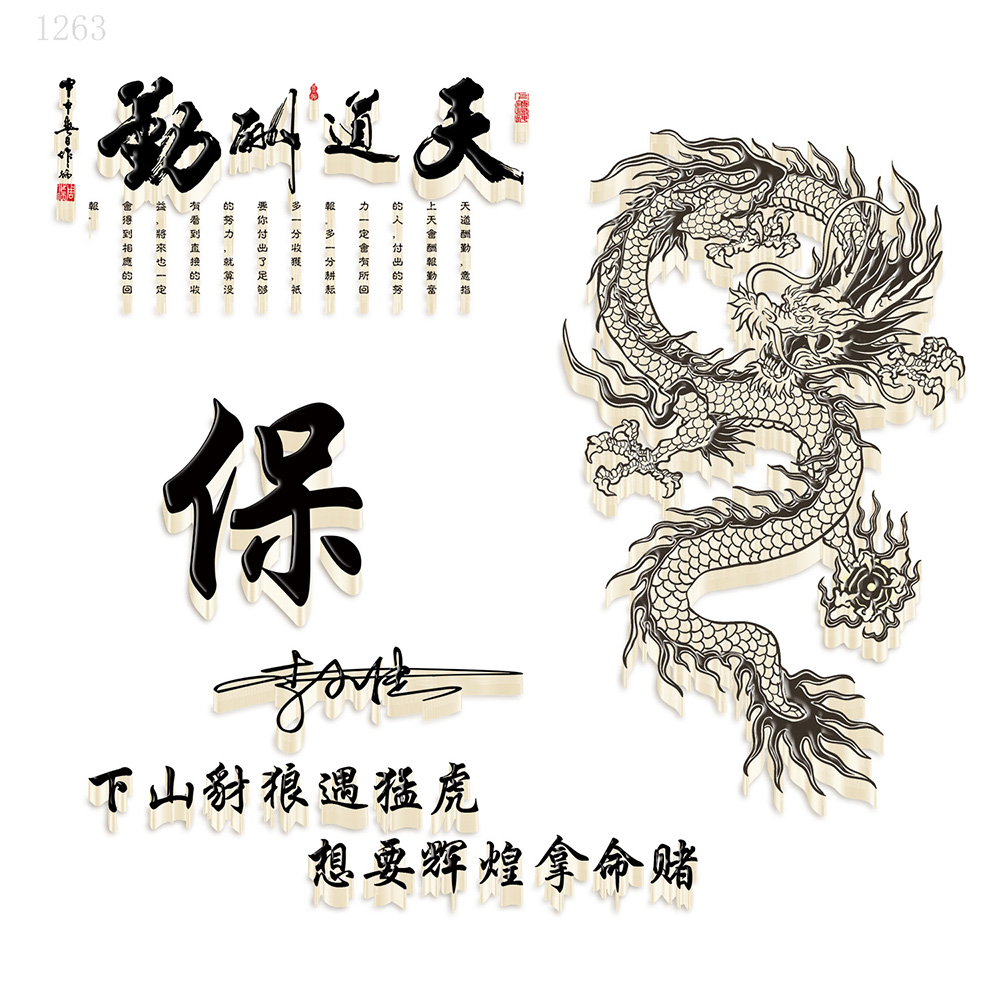 1263
天道酬勤
天道酬勤,意指
上天會酬報勤奮
的人,付出的努
力一定會有所回
報,多一分耕耘
多一分收獲,祇
要你付出了足夠
的努力,就算没
有看到直接的收
益,將來也一定
會得到相應的回
報.
保
下山豺狼遇猛虎
想要辉煌拿命赌